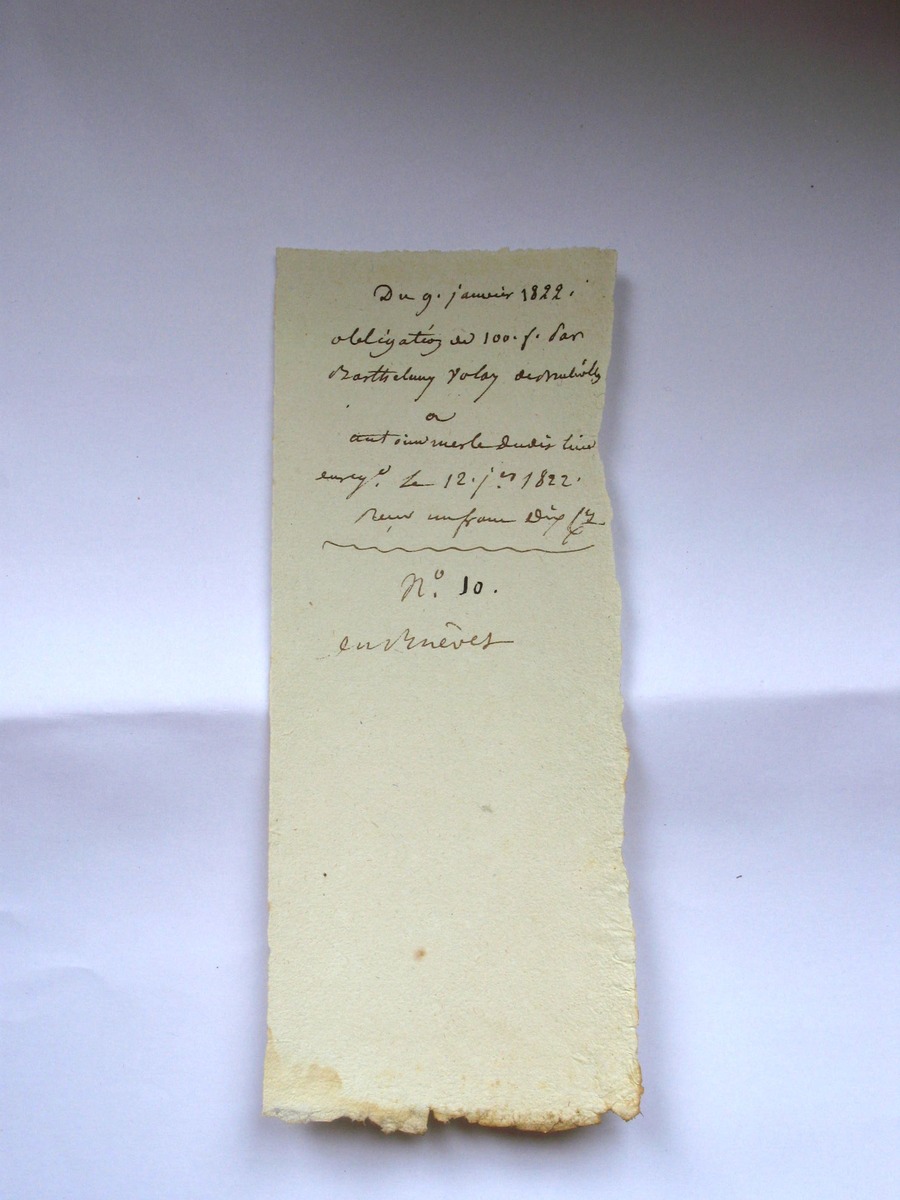 Du 9. janvier 1822.
obligation de 100. f. par
Barthelemy Volay
a
antoine merle dudit lieu
enregé. le 12. jer 1822.
Reçu un franc Dix
No. 10.
en Brévet